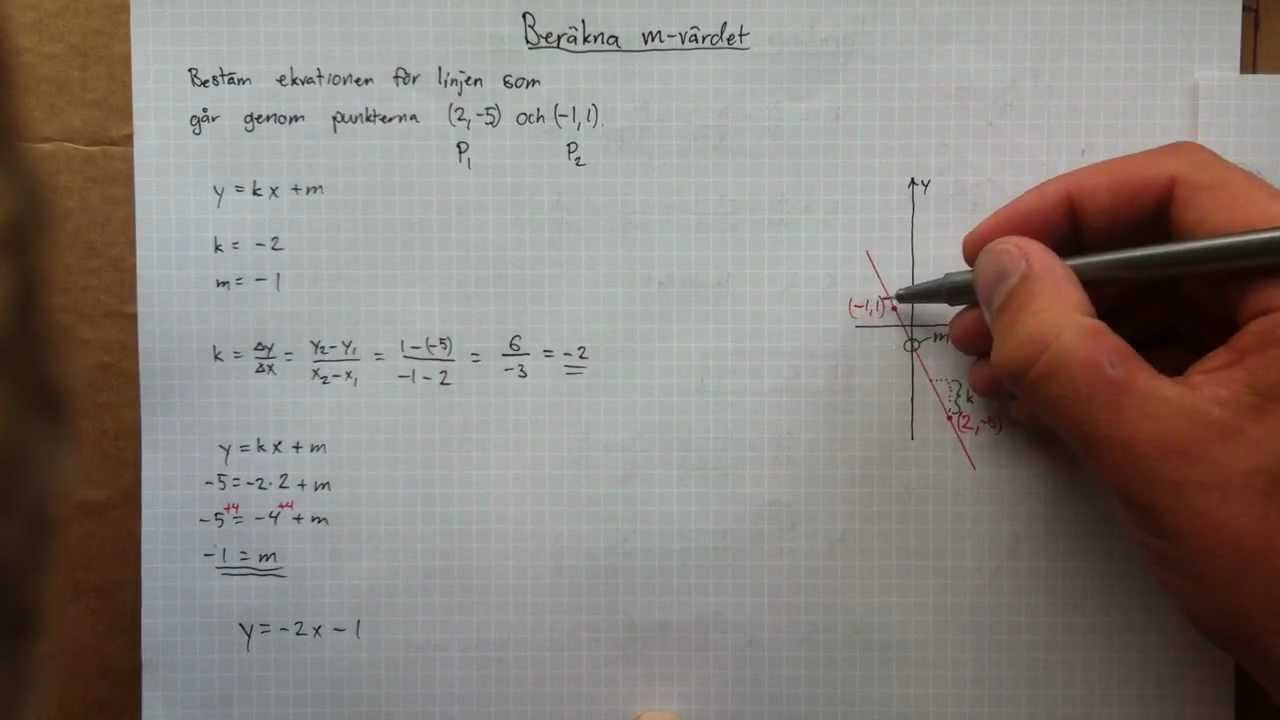 Beräkna m-värdet
Bestäm ekvationen för linjen som
går genom punkterna (2, -5) och (-1, 1).
P₁ P₂
y = kx + m
k = -2
m = -1
k = Δy/Δx = (y₂-y₁)/(x₂-x₁) = (1-(-5))/(-1-2) = 6/-3 = -2
y = kx + m
-5 = -2·2 + m
-5 +4 = -4 +4 + m
-1 = m
y = -2x - 1
y
(-1,1)
m
k
(2,-5)